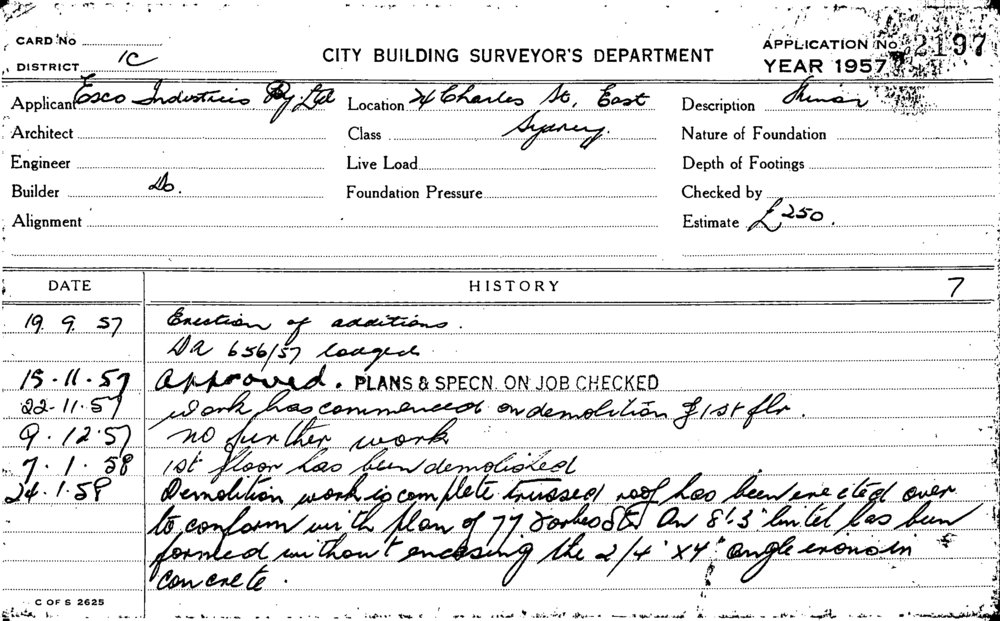 CARD No
DISTRICT 1C
CITY BUILDING SURVEYOR'S DEPARTMENT
APPLICATION No. 2197
YEAR 1957
Applicant Esco Industries Pty Ltd
Location 74 Charles St, East
Sydney.
Description Minor
Architect
Class
Nature of Foundation
Engineer
Live Load
Depth of Footings
Builder Do.
Foundation Pressure
Checked by
Alignment
Estimate £250.
DATE
HISTORY
7
19. 9. 57 Erection of additions.
DA 656/57 lodged
15.11.57 Approved. PLANS & SPECN. ON JOB CHECKED
22.11.57 Work has commenced on demolition of 1st flr.
9.12.57 no further work
7.1.58 1st floor has been demolished
24.1.58 Demolition work is complete trussed roof has been erected over
to conform with plan of 77 Forbes St. An 8'.3" lintel has been
formed without encasing the 2/4" x 4" angle irons in
concrete.
C OF S 2625